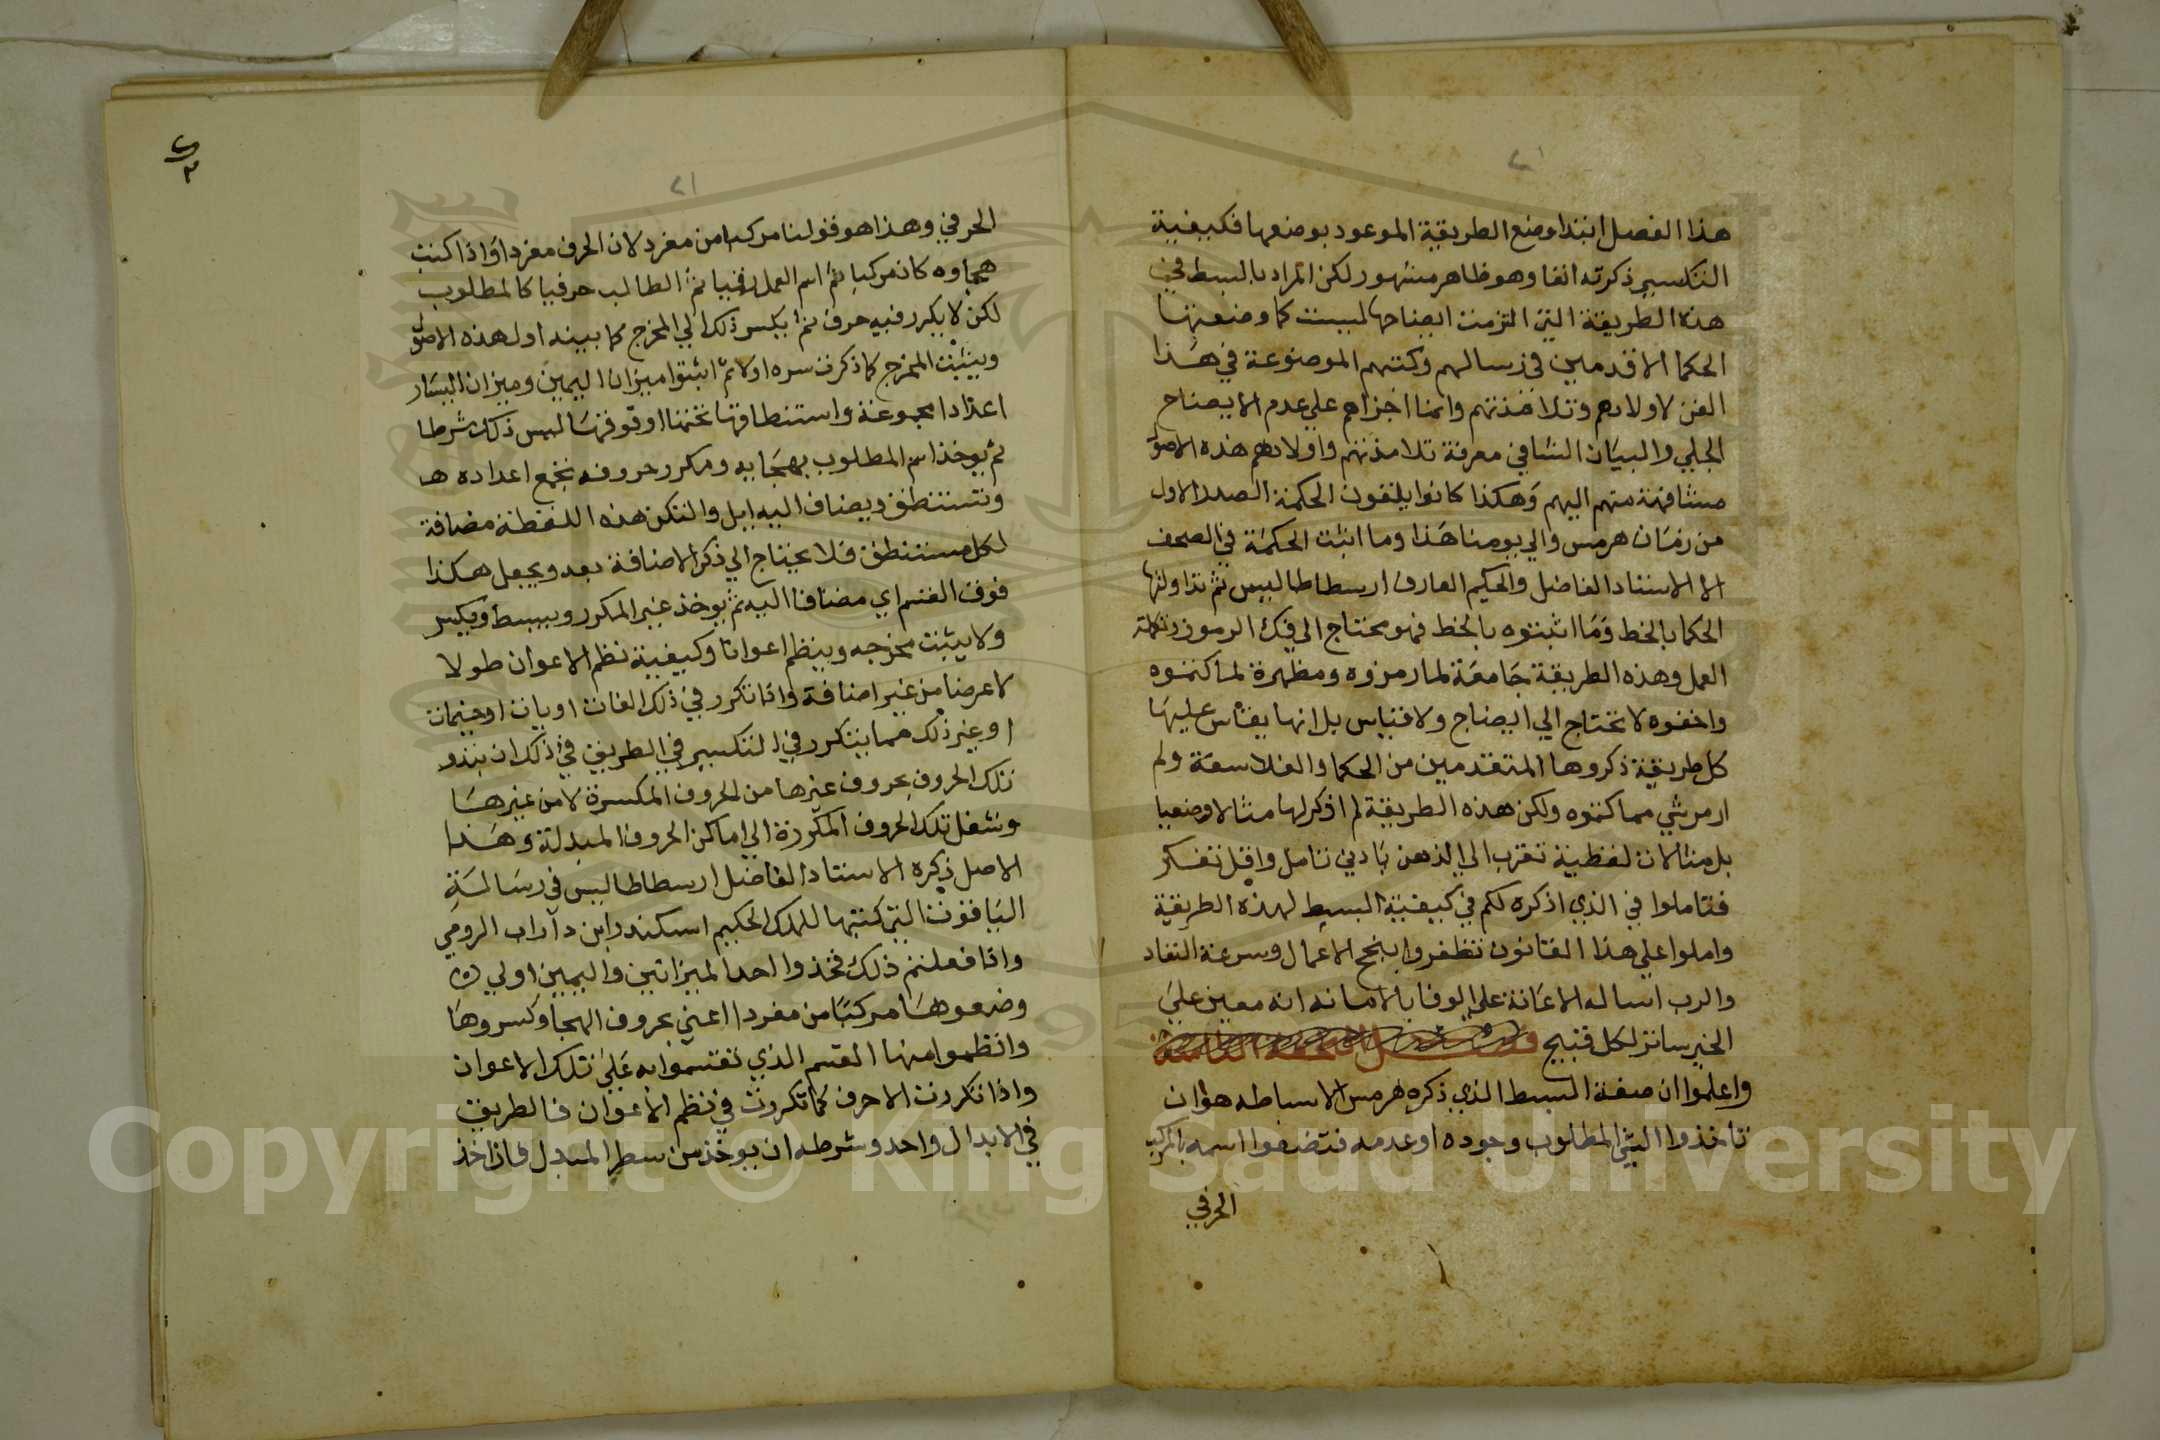 هذا الفصل ابتدا وضع الطريقة الموعود بوضعها فكيفية
التكسير ذكرته انفا وهو ظاهر مشهور لكن المراد بالبسط في
هذه الطريقة التي التزمت ايضاحها لمبينت كما وضعتها
الحكما الاقدمين في رسالهم وكتبهم الموضوعة في هذا
الفن لاولادهم وتلامذتهم وانما اجزاهم علي عدم الايضاح
الجلي والبيان الشافي معرفة تلامذتهم واولادهم هذه الاصول
مشافهة منهم اليهم وهكذا كانوا يلقون الحكمة الصدر الاول
من زمان هرمس والي يومنا هذا وما اثبت الحكمة في الصحف
الا الاستاد الفاضل والحكيم العارف ارسطاطاليس ثم تداولتها
الحكما بالخط وما اثبتوه بالخط فهو محتاج الي فك الرموز وتكملة
العمل وهذه الطريقة جامعة لما رمزوه ومظهرة لما كتموه
واخفوه لا تحتاج الي ايضاح ولا قياس بل انها يقاس عليها
كل طريقة ذكروها المتقدمين من الحكما والفلاسفة ولم
ارمز شي مما كتموه ولكن هذه الطريقة لم اذكر لها مثالا وضعيا
بل مثالات لفظية تقرب الي الذهن بادني تامل واقل تفكر
فتاملوا في الذي اذكره لكم في كيفية البسط لهذه الطريقة
واملوا علي هذا القانون تظفروا بنجح الاعمال وسرعة النفاد
والرب اساله الاعانة علي الوفا بالامانه انه معين علي
الخير ساتر لكل قبيح
واعلموا ان صفة البسط الذي ذكره هرمس الاساطه هو ان
تاخذوا الشي المطلوب وجوده او عدمه فتضعوا اسمه بالتركيب
الحرفي
٢١
الحرفي وهذا هو قولنا مركبا من مفرد لان الحرف مفردا واذا كتبت
هجاوه كان مركبا ثم اسم العمل ثم الطالب حرفيا كالمطلوب
لكن لا يكرر فيه حرف ثم يكسر ذلك الي المخرج كما بينه اول هذه الاصول
ويثبت المخرج كما ذكرت سره اولا ثم اثبتوا ميزان اليمين وميزان اليسار
اعدادا مجموعة واستنطاقها تحتها او فوقها ليس ذلك شرطا
ثم يوخذ اسم المطلوب بهجايه ومكرر حروفه تجمع اعداده
وتستنطق ويضاف اليه ايل ولتكن هذه اللفظة مضافة
لكل مستنطق فلا يحتاج الي ذكر الاضافة بعد ويجعل هكذا
فوق القسم اي مضافا اليه ثم يوخذ غير المكرر ويبسط ويكسر
ولا يثبت مخرجه وينظم اعوانا وكيفية نظم الاعوان طولا
لا عرضا من غير اضافة واذا تكرر في ذلك الفات او يات او جيمات
او غير ذلك مما يتكرر في التكسير في الطريق في ذلك ان
تلك الحروف بحروف غيرها من الحروف المكسرة لا من غيرها
وتنقل تلك الحروف المكررة الي اماكن الحروف المبدلة وهذا
الاصل ذكره الاستاد الفاضل ارسطاطاليس في رسالته
التي كتبها للملك الحكيم اسكندر ابن داراب الرومي
واذا فعلتم ذلك فخذوا احد الميزانين واليمين اولي
وضعوها مركبا من مفردا اعني بحروف الهجا وكسروها
وانظموا منها القسم الذي تقسموا به علي تلك الاعوان
واذا تكررت الاحرف كما تكررت في نظم الاعوان فالطريق
في الابدال واحد وشرطه ان يوخذ من سطر المبدل فان اخذ
Copyright © King Saud University